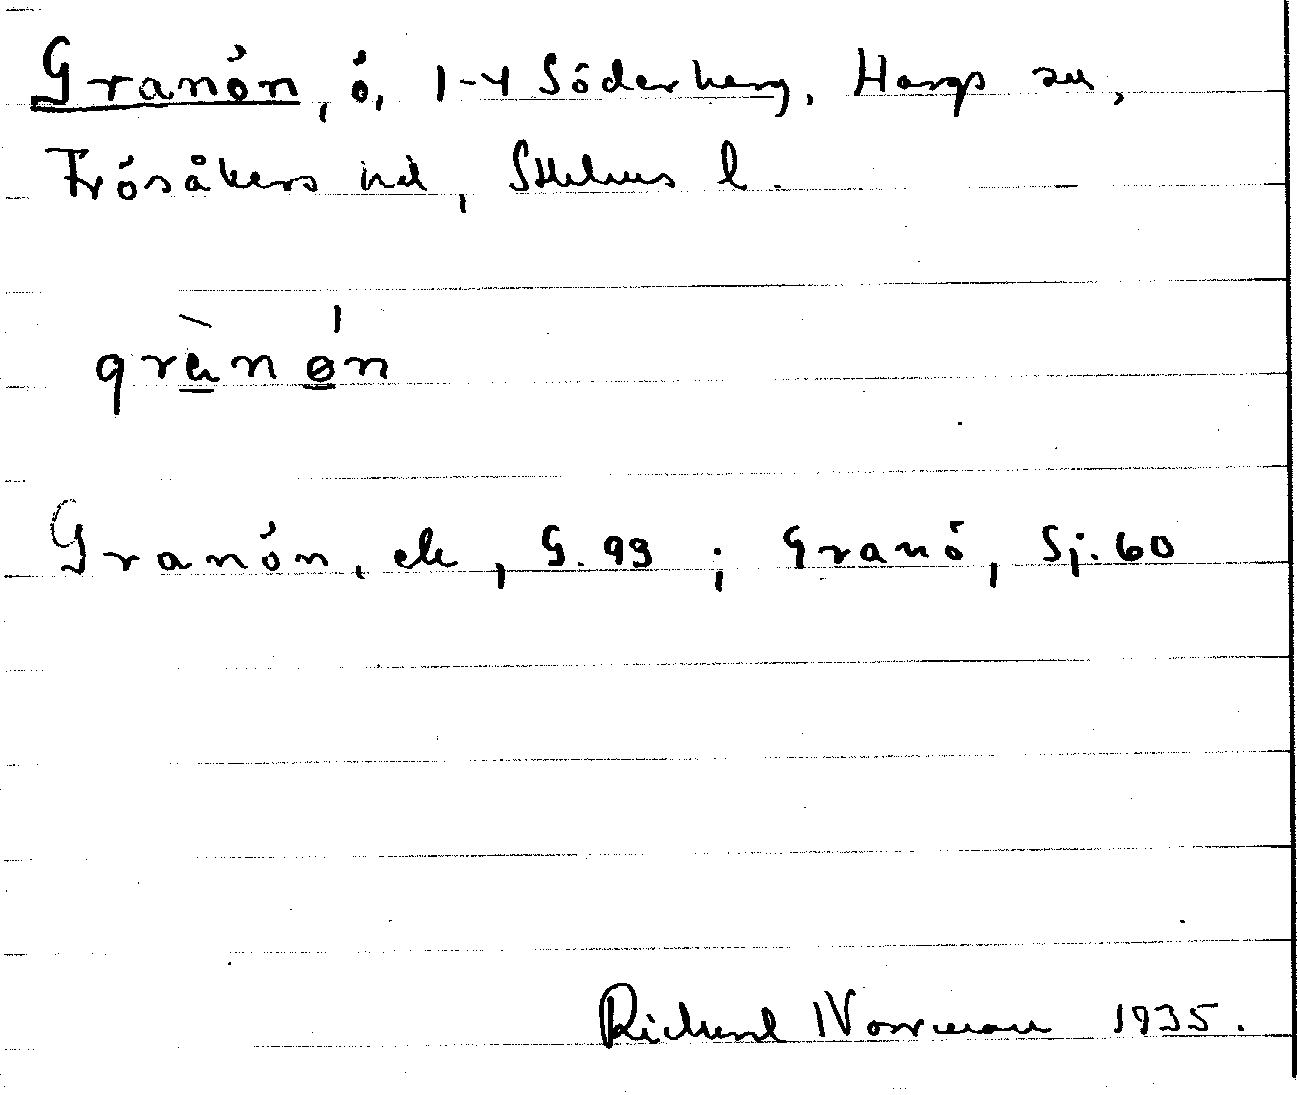 Granön, ö, 1-4 Söderberg, Hargs sn,
Frösåkers hd, Sthlms l.
grànön
Granön, ek, G. 93 ; Granö, Sj. 60
Richard Norrman 1935.